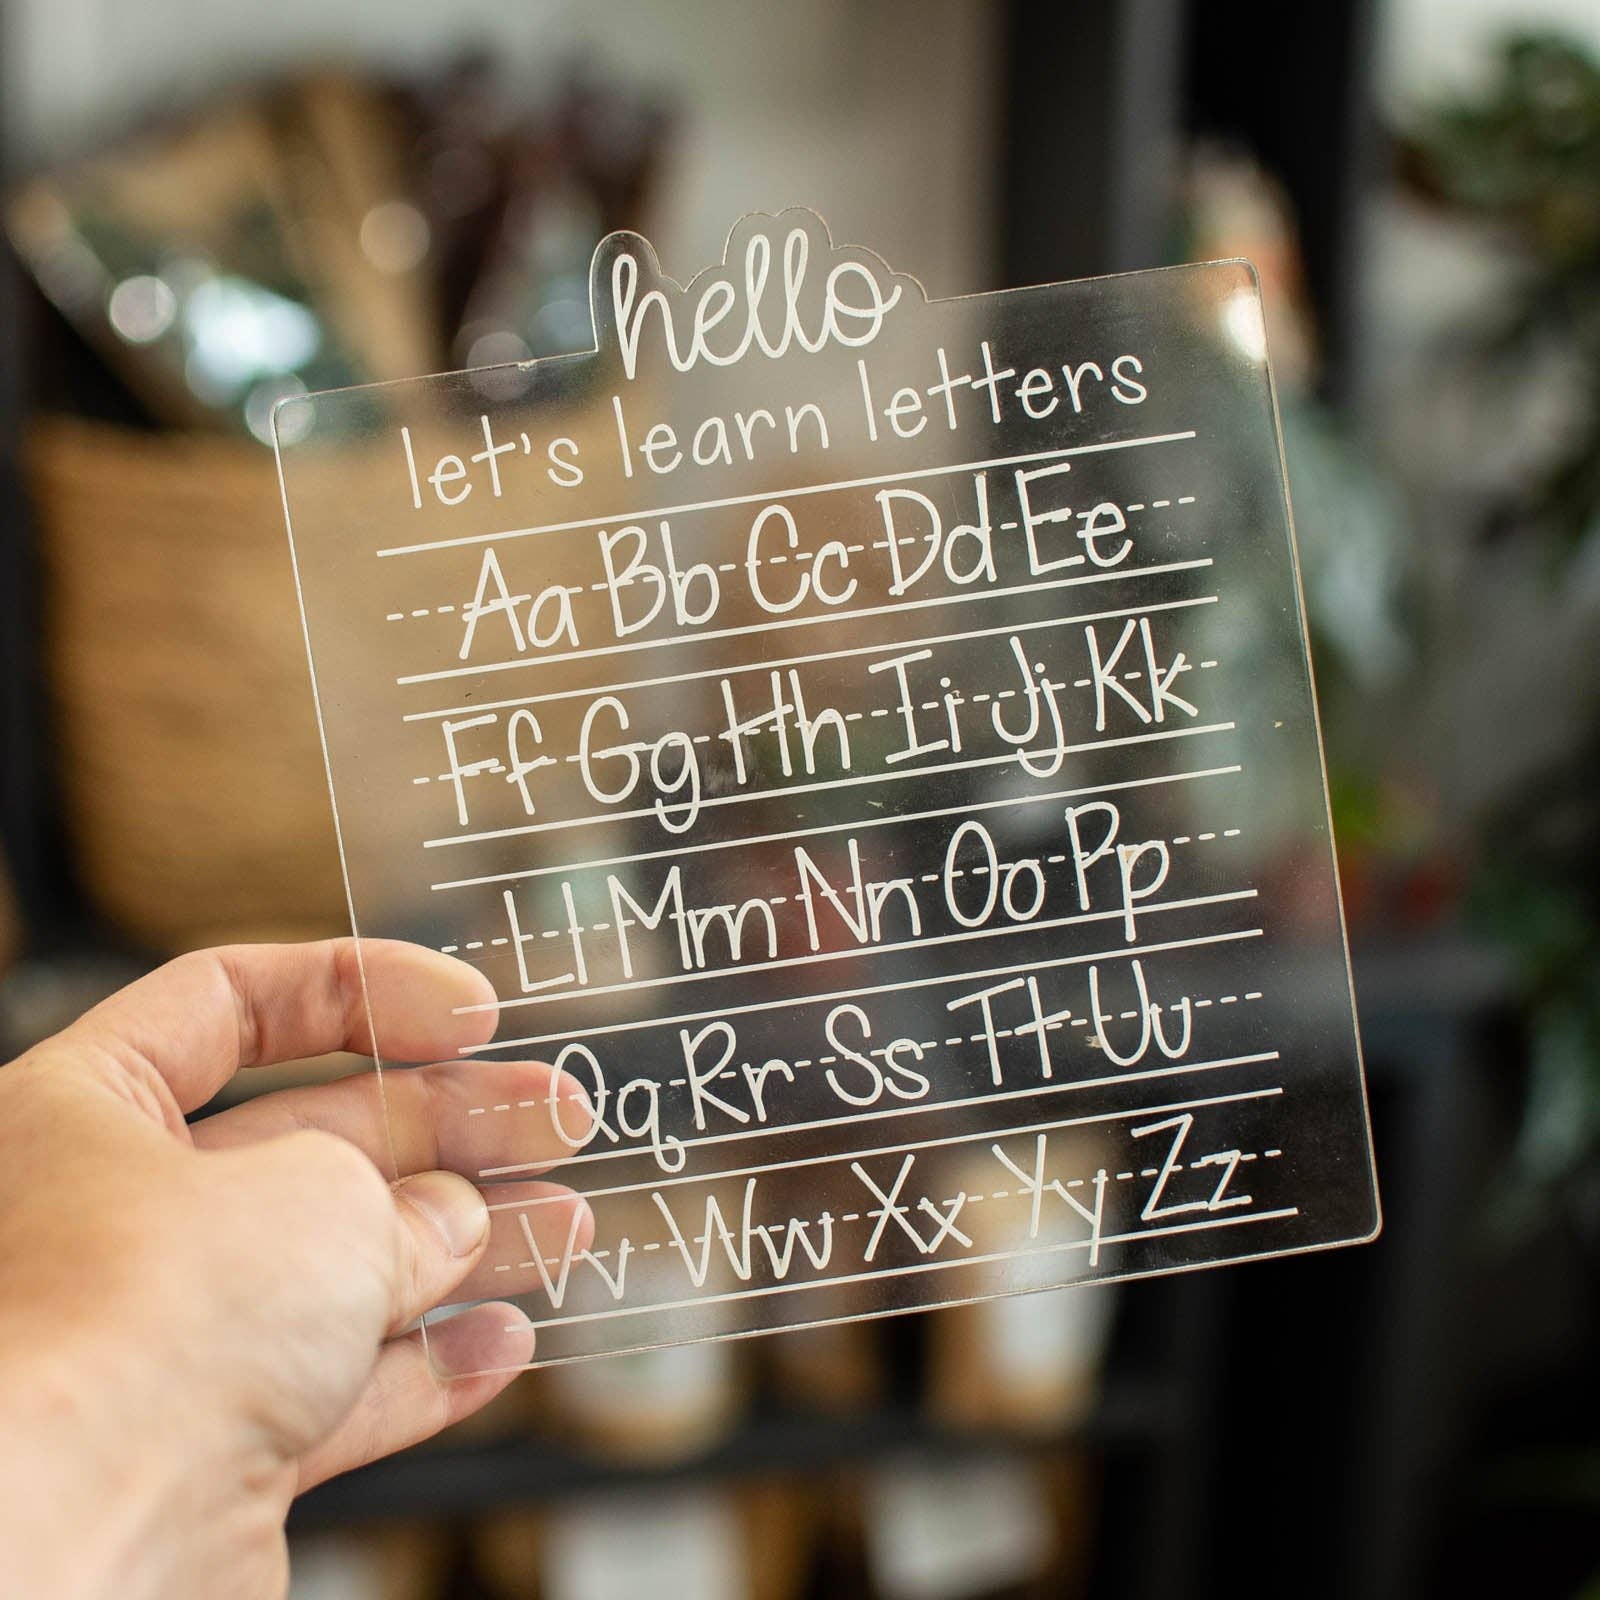 hello
let's learn letters
Aa Bb Cc Dd Ee
Ff Gg Hh Ii Jj Kk
Ll Mm Nn Oo Pp
Qq Rr Ss Tt Uu
Vv Ww Xx Yy Zz